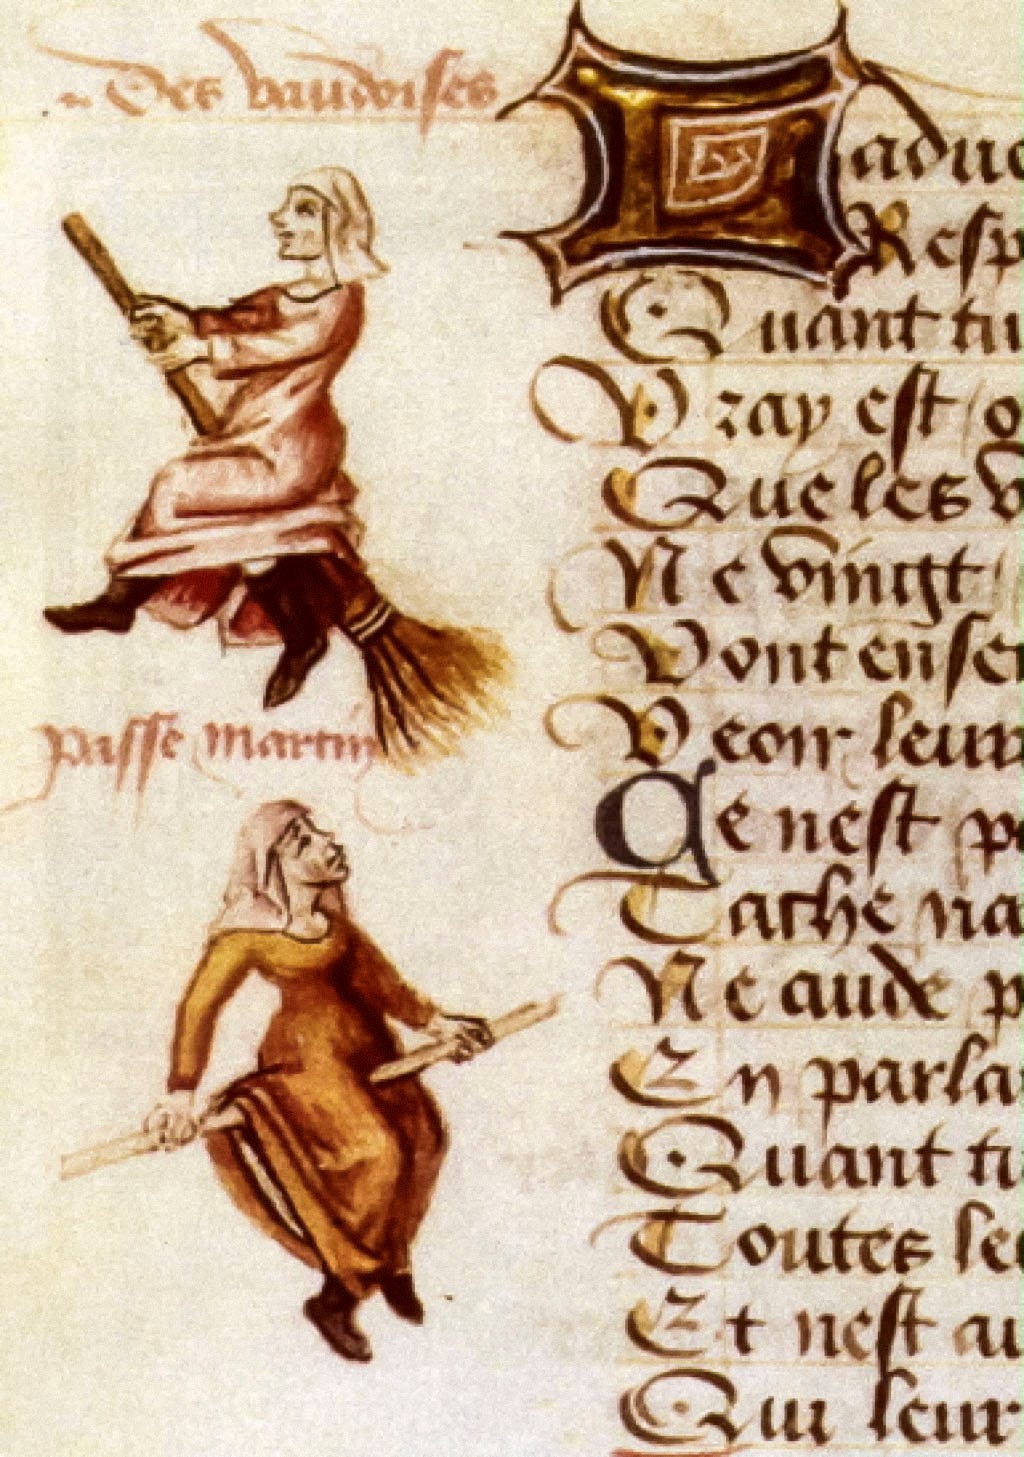 Des vaudoises
passe martin
Ladue
Resp
Quant tu
Vray est o
Que les v
Ne vingt
Vont ensem
Veoir leur
Ce nest po
Tache na
Ne aude p
En parla
Quant tu
Toutes les
Et nest au
Qui leur